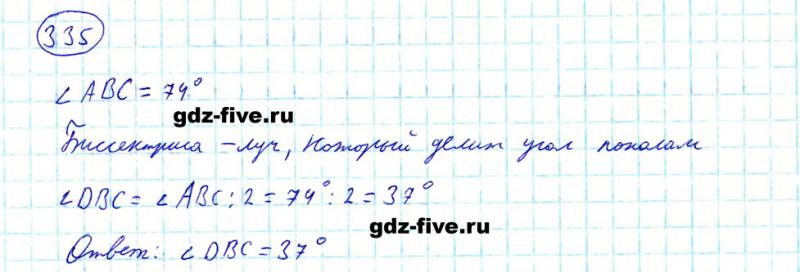 335
∠ABC = 74°
gdz-five.ru
Биссектриса – луч, который делит угол пополам
∠DBC = ∠ABC : 2 = 74° : 2 = 37°
gdz-five.ru
Ответ: ∠DBC = 37°